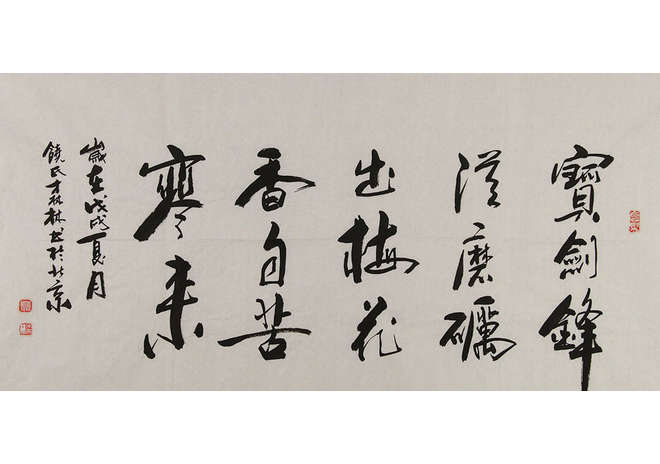 寶劍鋒
從磨礪
出梅花
香自苦
寒来
歲在戊戌夏月
饒氏才林书於北京